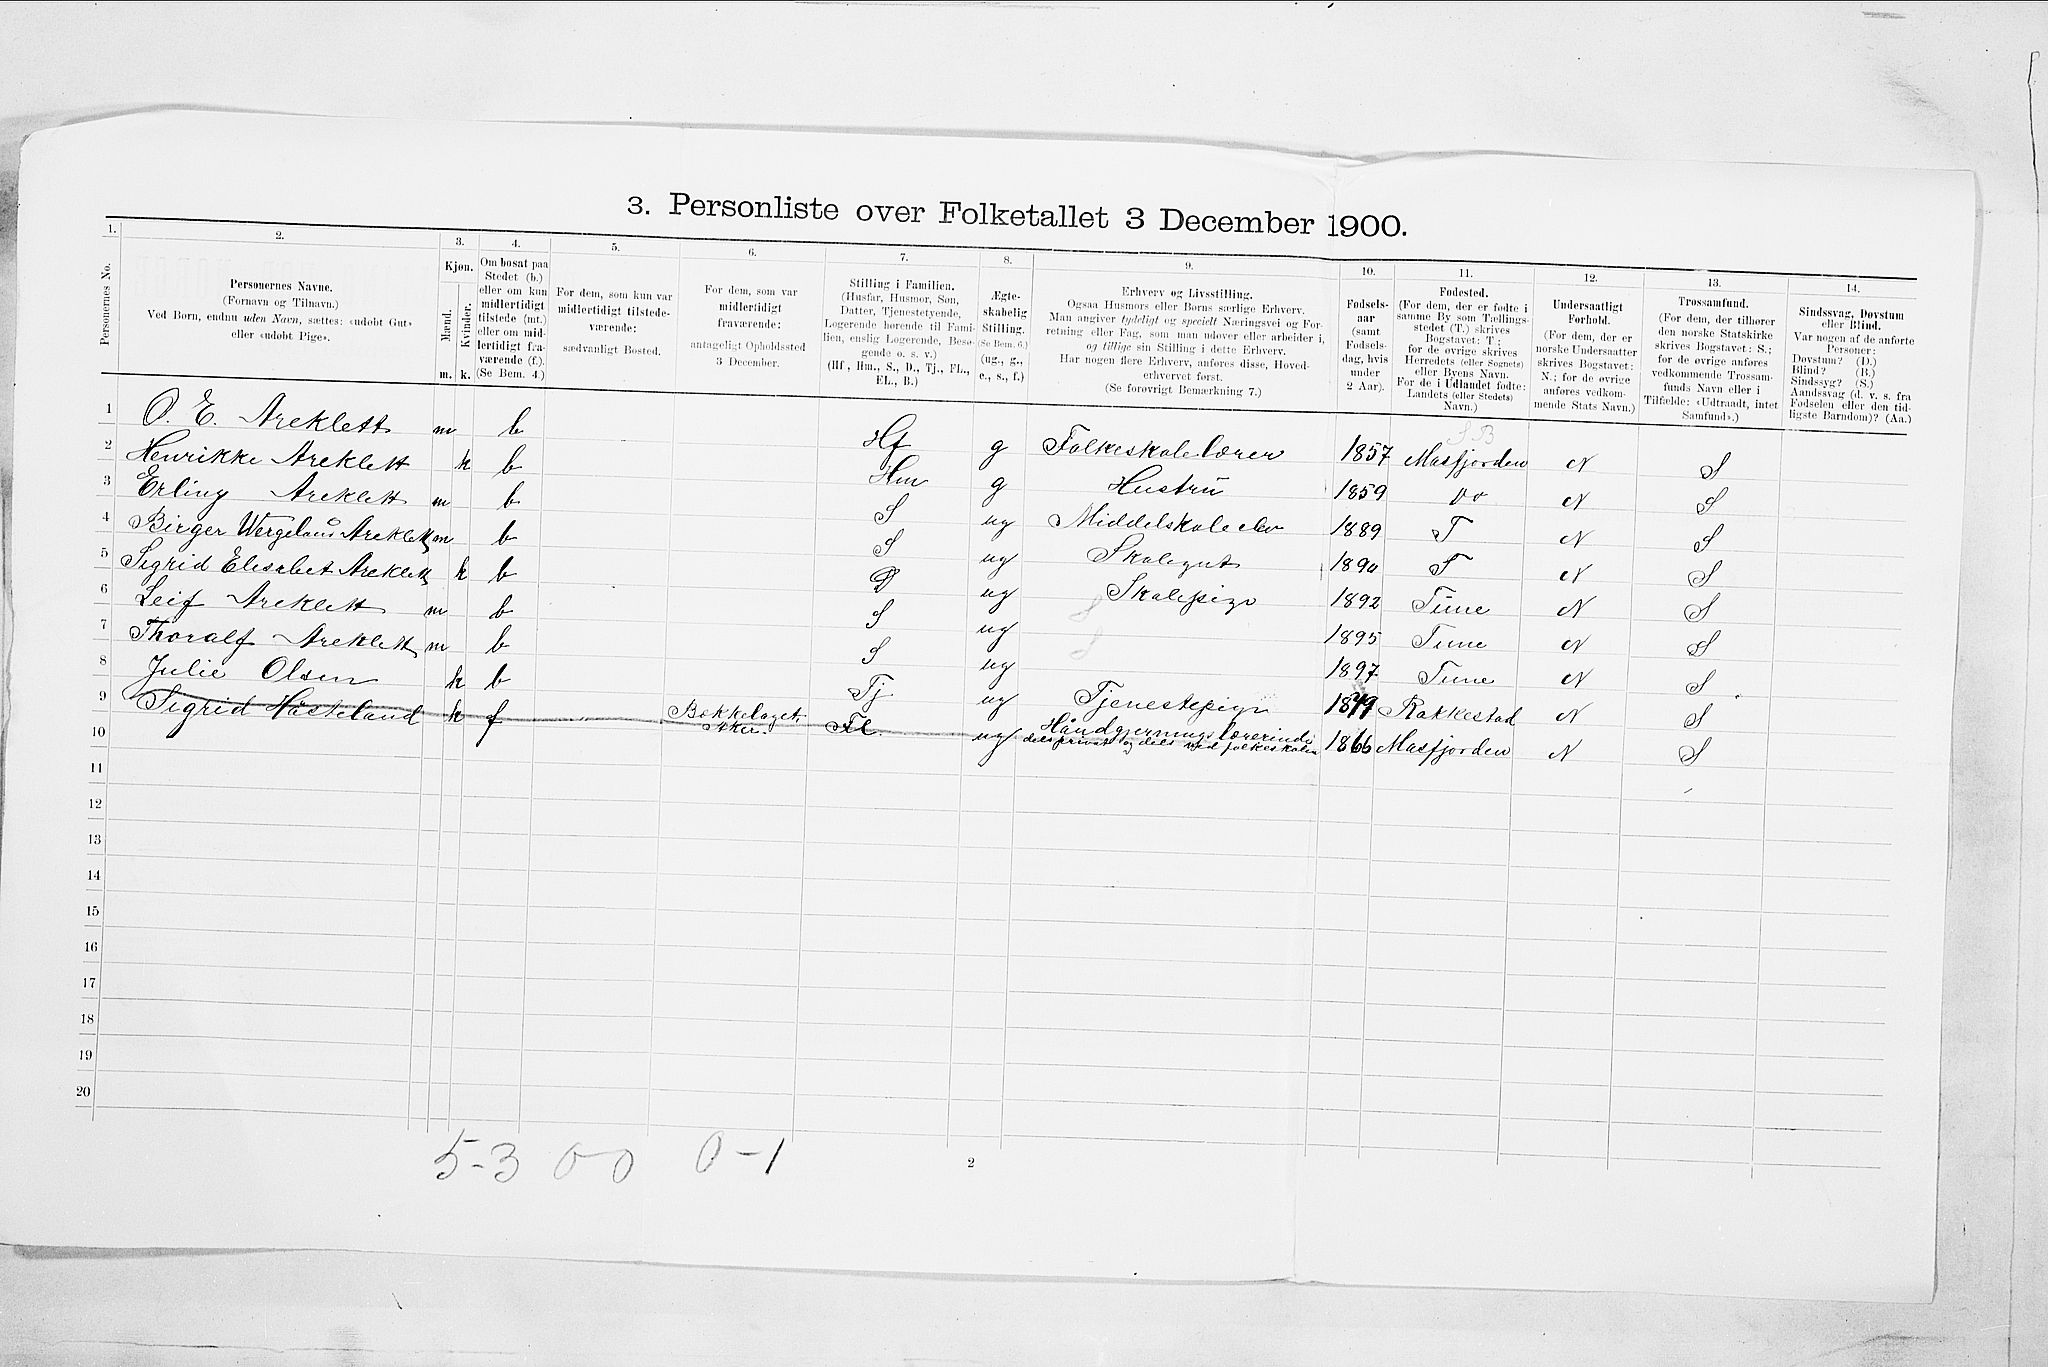 3. Personliste over Folketallet 3 December 1900.
1. 2. 3. 4. 5. 6. 7. 8. 9. 10. 11. 12. 13. 14.
Personernes No.
Personernes Navne.
(Fornavn og Tilnavn.)
Ved Børn, endnu uden Navn, sættes: «udøbt Gut»
eller «udøbt Pige».
Kjøn.
Mænd.
Kvinder.
m. k.
Om bosat paa
Stedet (b.)
eller om kun
midlertidigt
tilstede (mt.)
eller om mid-
lertidigt fra-
værende (f.).
(Se Bem. 4.)
For dem, som kun var
midlertidigt tilstede-
værende:
sædvanligt Bosted.
For dem, som var
midlertidigt
fraværende:
antageligt Opholdssted
3 December.
Stilling i Familien.
(Husfar, Husmor, Søn,
Datter, Tjenestetyende,
Logerende hørende til Fami-
lien, enslig Logerende, Besø-
gende o. s. v.)
(Hf., Hm., S., D., Tj., FL.,
EL., B.)
Ægte-
skabelig
Stilling.
(Se Bem. 6.)
(ug., g.,
e., s., f.)
Erhverv og Livsstilling.
Ogsaa Husmors eller Børns særlige Erhverv.
Man angiver tydeligt og specielt Næringsvei og For-
retning eller Fag, som man udøver eller arbeider i,
og tillige sin Stilling i dette Erhverv.
Har nogen flere Erhverv, anføres disse, Hoved-
erhvervet først.
(Se forøvrigt Bemærkning 7.)
Fødsels-
aar
(samt
Fødsels-
dag, hvis
under
2 Aar).
Fødested.
(For dem, der er fødte i
samme By som Tællings-
stedet (T.) skrives
Bogstavet: T.;
for de øvrige skrives
Herredets (eller Sognets)
eller Byens Navn.
For de i Udlandet fødte:
Landets (eller Stedets)
Navn.)
Undersaatligt
Forhold.
(For dem, der er
norske Undersaatter
skrives Bogstavet:
N.; for de øvrige
anføres vedkom-
mende Stats Navn.)
Trossamfund.
(For dem, der tilhører
den norske Statskirke
skrives Bogstavet: S.;
for de øvrige anføres
vedkommende Trossam-
funds Navn eller i
Tilfælde: «Udtraadt, intet
Samfund».)
Sindssvag, Døvstum
eller Blind.
Var nogen af de anførte
Personer:
Døvstum? (D.)
Blind? (B.)
Sindssyg? (S.)
Aandssvag (d. v. s. fra
Fødselen eller den tid-
ligste Barndom)? (Aa.)
S B
1 O. E. Areklett m b Hf g Folkeskolelærer 1857 Masfjorden N S
2 Henrikke Areklett k b Hm g Hustru 1859 do N S
3 Erling Areklett m b S ug Middelskoleelev 1889 T N S
4 Birger Wergeland Areklett m b S ug Skolegut 1890 T N S
5 Sigrid Elisabet Areklett k b D ug Skolepige 1892 Tune N S
6 Leif Areklett m b S ug S 1895 Tune N S
7 Thoralf Areklett m b S ug S 1897 Tune N S
8 Julie Olsen k b Tj ug Tjenestepige 1879 Rakkestad N S
9 Sigrid Håsteland k f Bækkelaget Aker. FL. ug Håndgjerningslærerinde
dels privat og dels ved folkeskolen 1866 Masfjorden N S
10
11
12
13
14
15
16
17
18
19
20
5-3 0-0 0-1
2